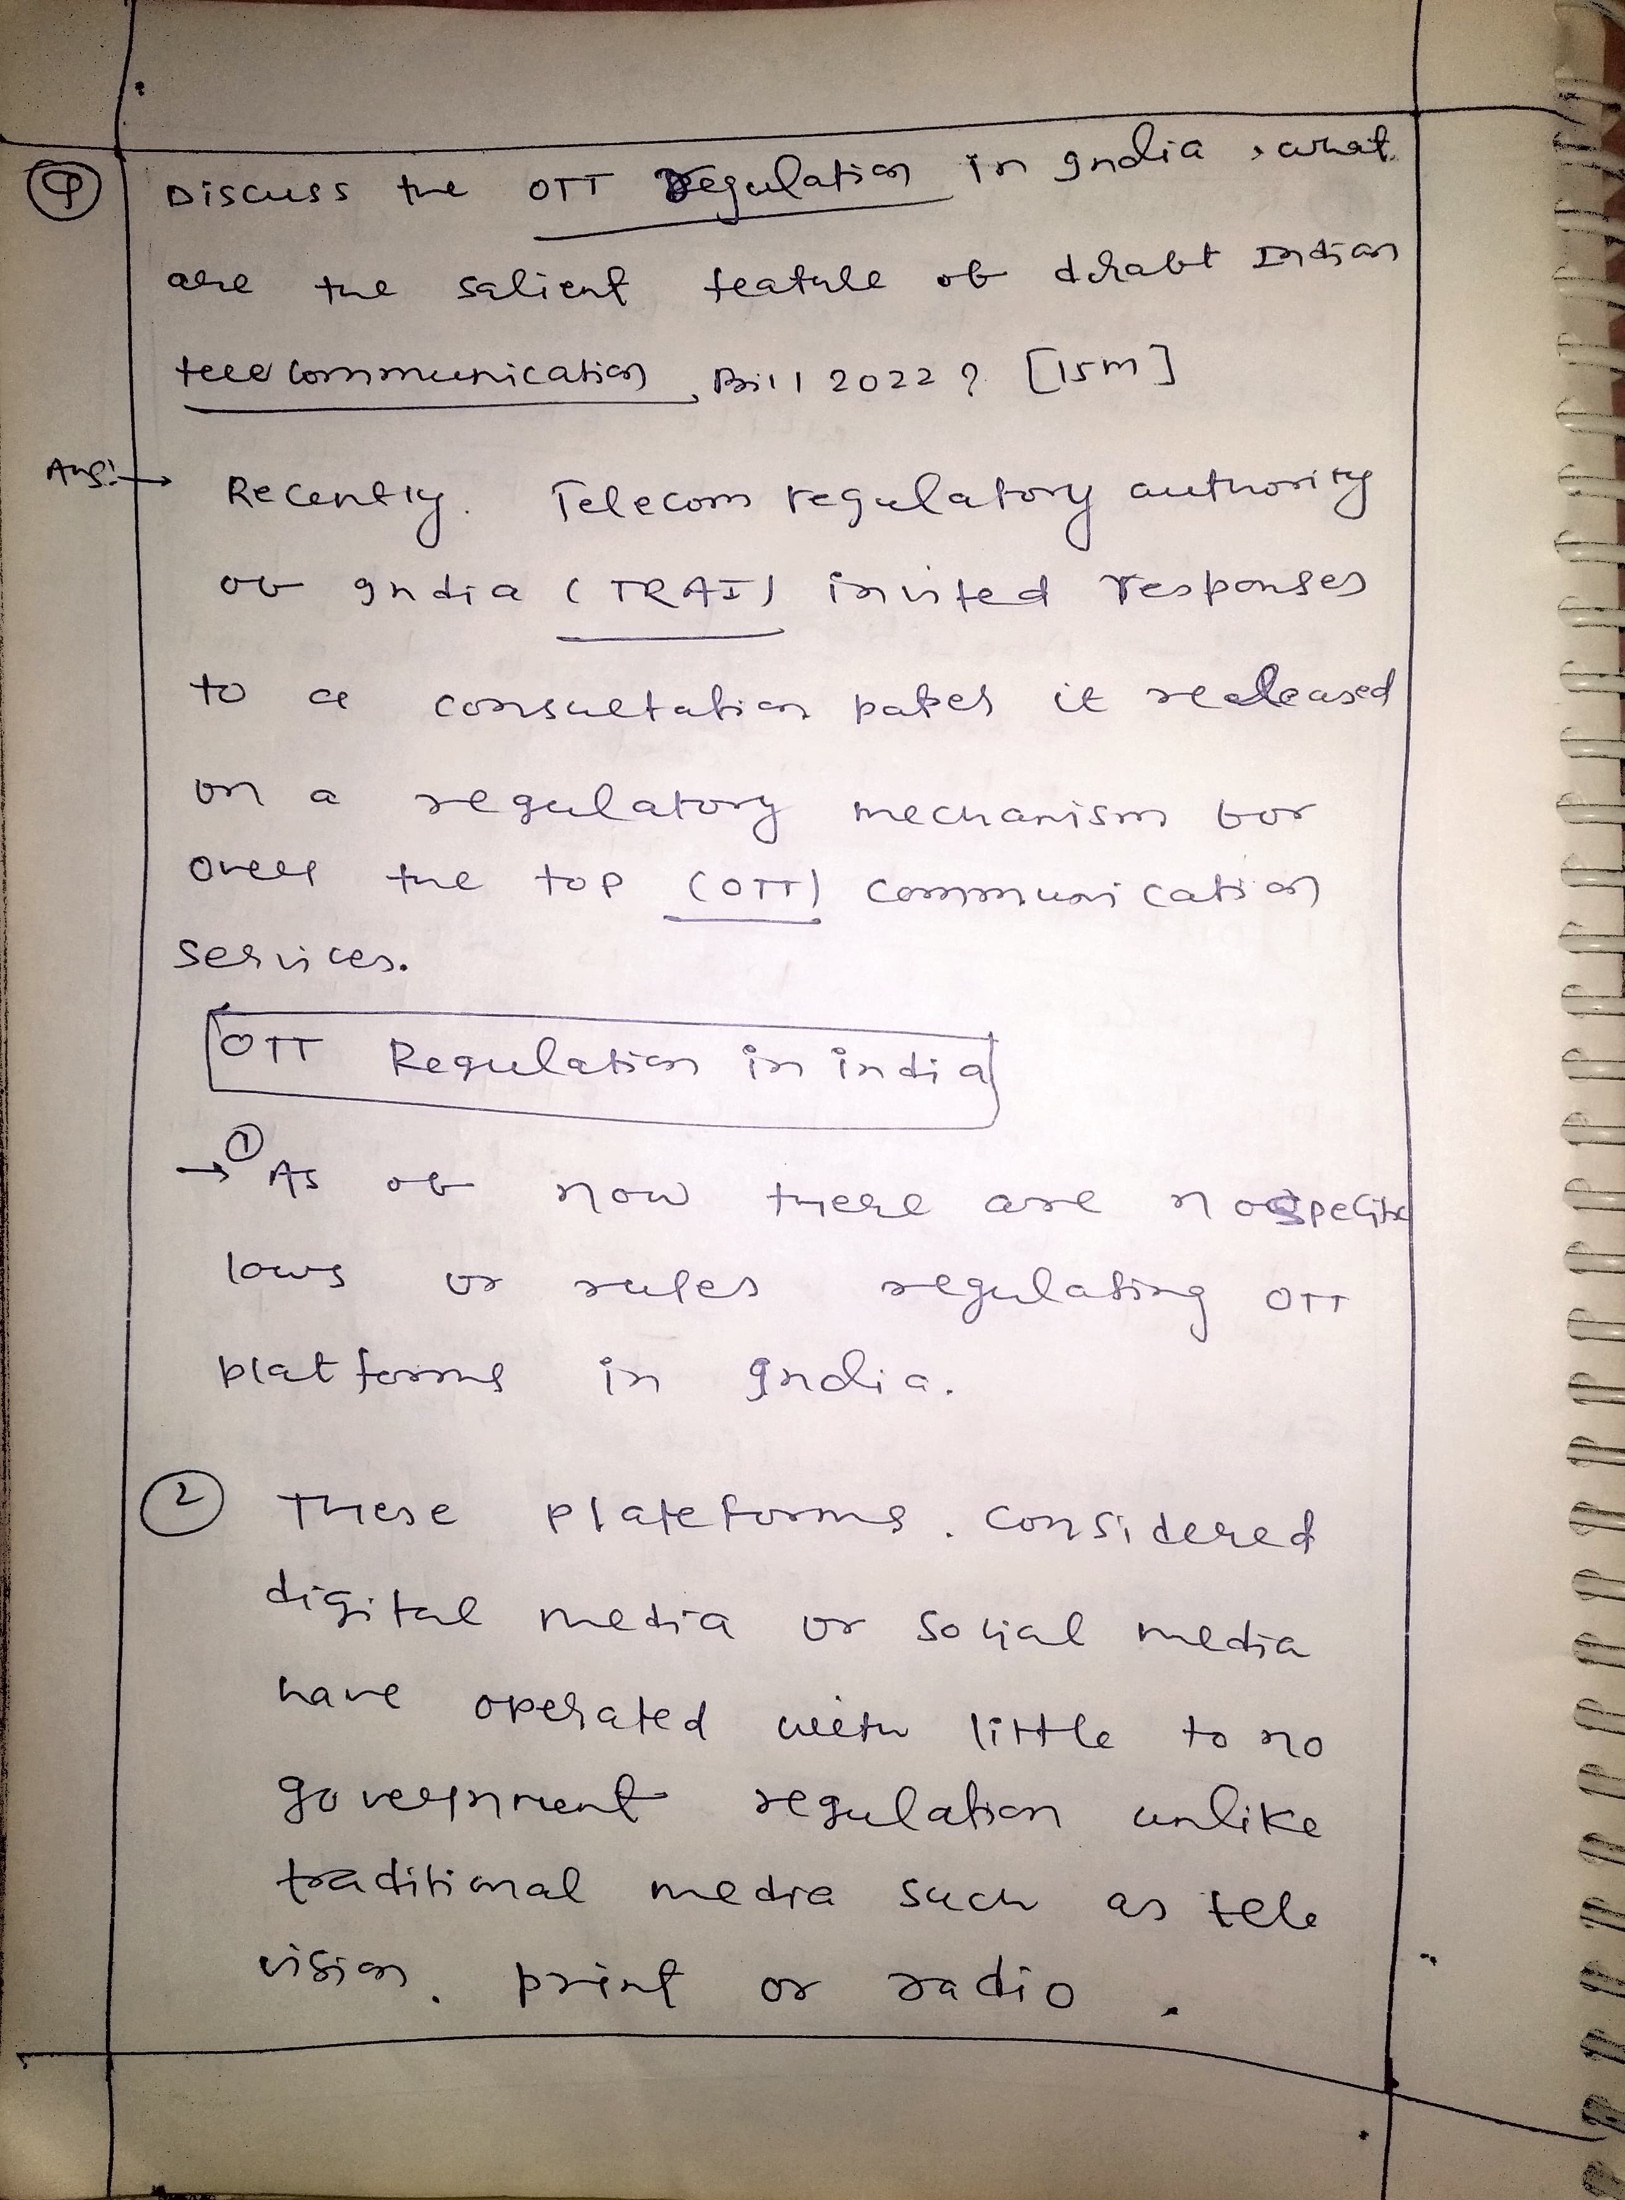 Q Discuss the OTT Regulation in India, what
are the salient feature of draft Indian
telecommunication Bill 2022? [15m]
Ans:→ Recently. Telecom regulatory authority
of India (TRAI) invited responses
to a consultation paper it realeased
on a regulatory mechanism for
over the top (OTT) communication
services.
OTT Regulation in india
→ ① As of now there are no specific
laws or rules regulating OTT
platforms in India.
② These plateforms. considered
digital media or social media
have operated with little to no
government regulation unlike
traditional media such as tele
vision. print or radio.